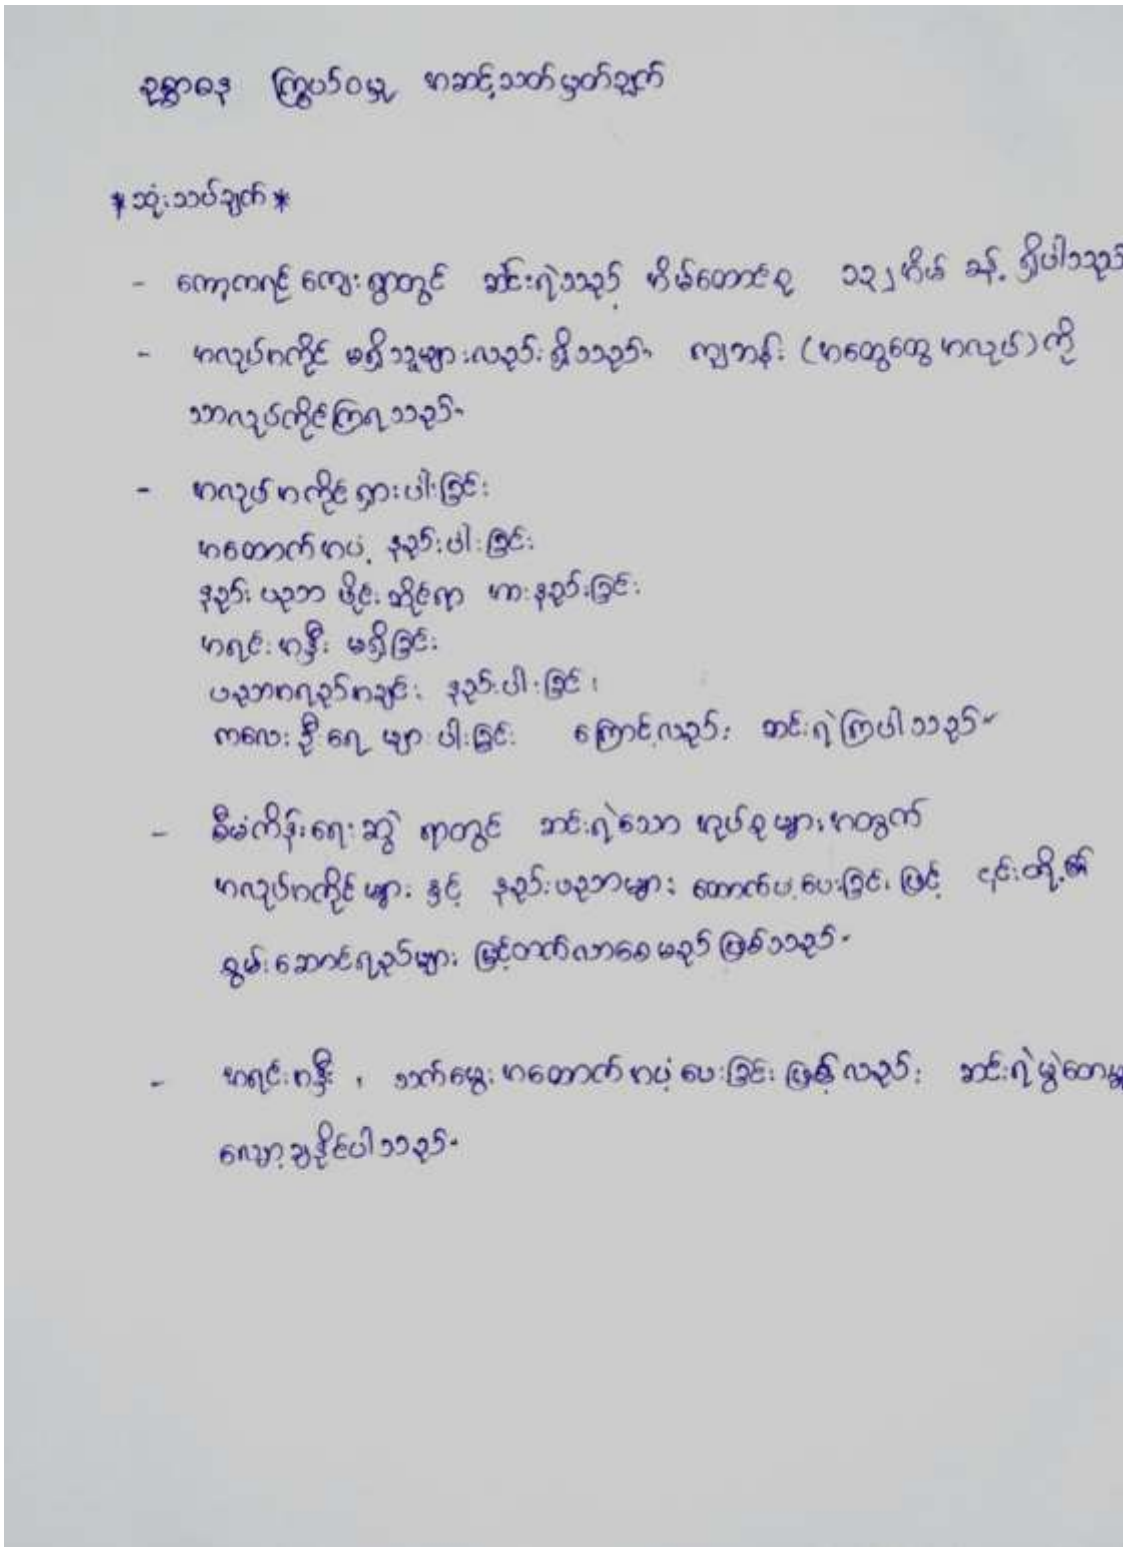 ဥစ္စာဓန ကြွယ်ဝမှု အဆင့်သတ်မှတ်ချက်
*သုံးသပ်ချက်*
- ကော့ကရင် ကျေးရွာတွင် ဆင်းရဲသည့် အိမ်ထောင်စု ၁၃၂ အိမ် ခန့် ရှိပါသည်
- အလုပ်အကိုင် မရှိသူများလည်း ရှိသည်။ ကျဘန်း (အထွေထွေ အလုပ်) ကို
သာလုပ်ကိုင်ကြရသည်။
- အလုပ်အကိုင်ရှားပါးခြင်း
အထောက်အပံ့ နည်းပါးခြင်း
နည်းပညာ ပိုင်းဆိုင်ရာ အားနည်းခြင်း
အရင်းအနှီး မရှိခြင်း
ပညာအရည်အချင်း နည်းပါးခြင်း၊
ကလေးဦးရေ များပါးခြင်း ကြောင့်လည်း ဆင်းရဲကြပါသည်။
- စီမံကိန်းရေးဆွဲ ရာတွင် ဆင်းရဲသော အုပ်စုများအတွက်
အလုပ်အကိုင်များ နှင့် နည်းပညာများ ထောက်ပံ့ပေးခြင်း ဖြင့် ၎င်းတို့၏
စွမ်းဆောင်ရည်များ မြင့်တက်လာစေမည် ဖြစ်သည်။
- အရင်းအနှီး ၊ သက်မွေး အထောက်အပံ့ပေးခြင်း ဖြင့် လည်း ဆင်းရဲမွဲတေမှု
လျော့ချနိုင်ပါသည်။